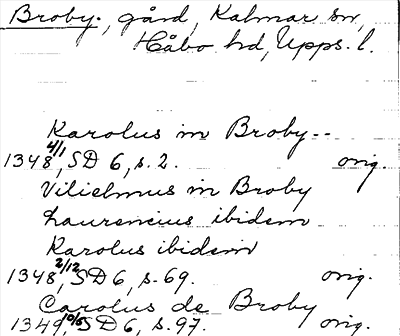 Broby., gård, Kalmar sn,
Håbo hd, Upps. l.
Karolus in Broby--
1348 4/1, SD 6, s. 2. orig.
Vilielmus in Broby
Laurencius ibidem
Karolus ibidem
1348 2/12, SD 6, s. 69. orig.
Carolus de Broby
1349 10/5, SD 6, s. 97. orig.